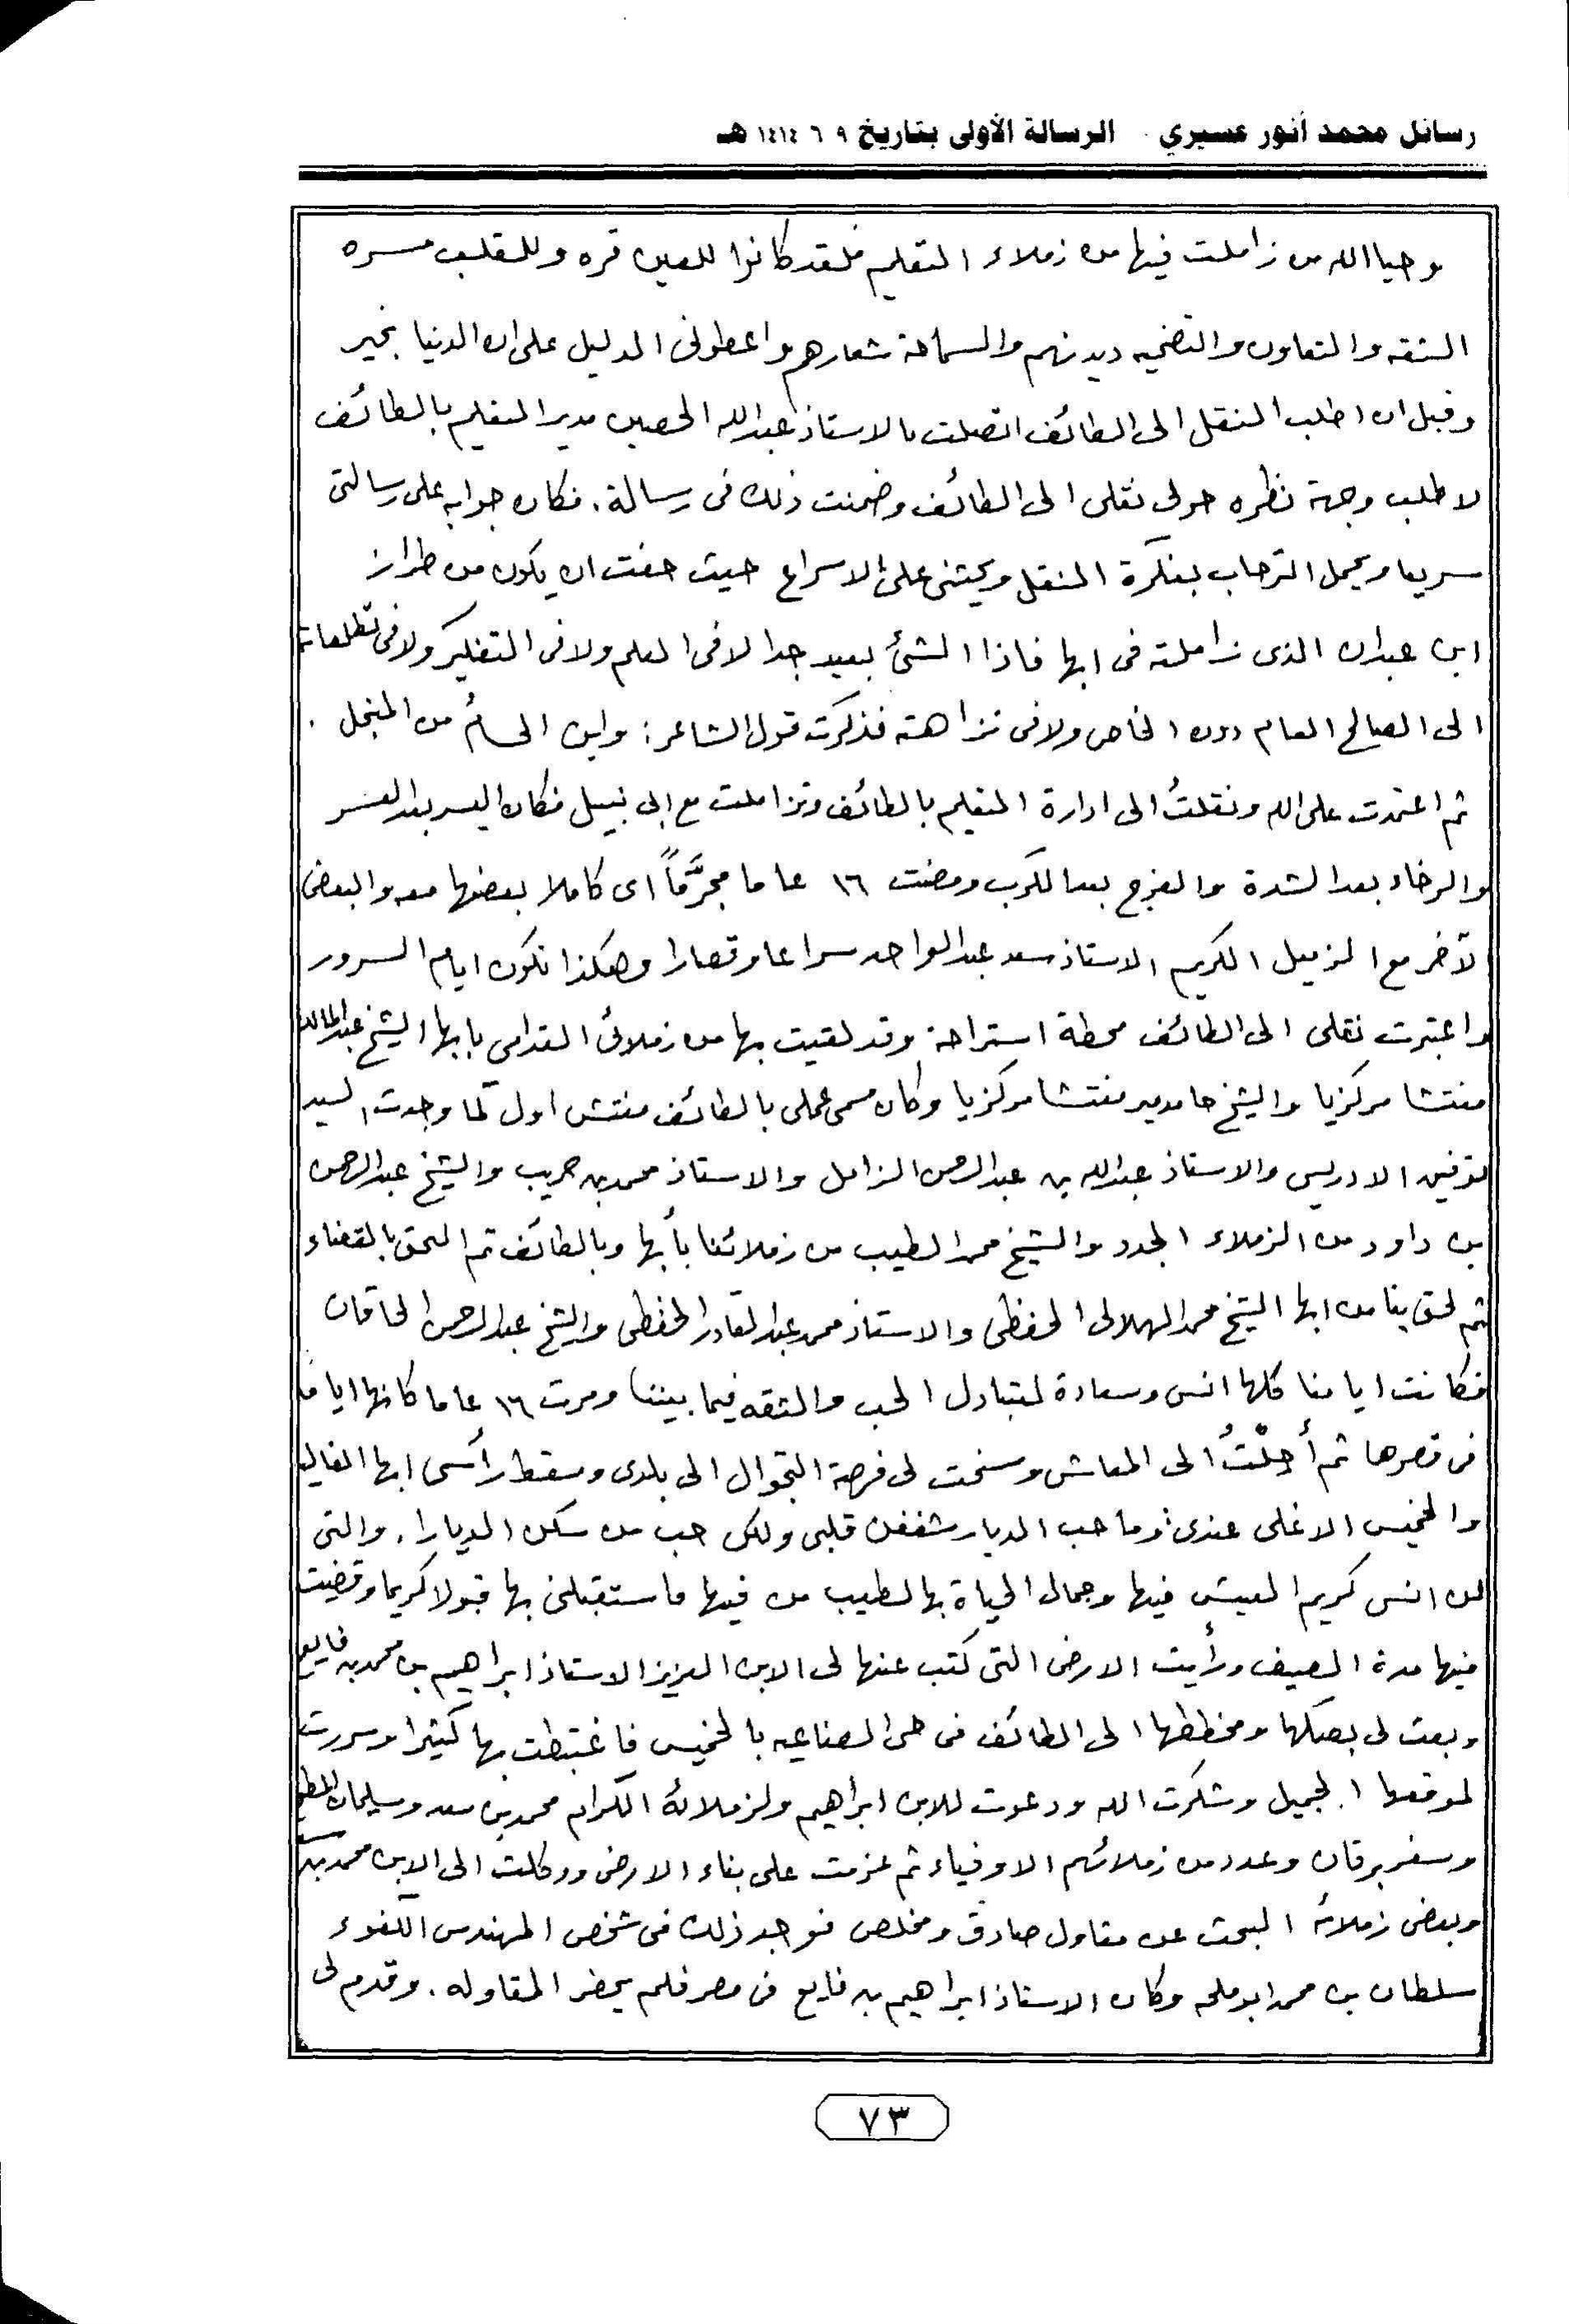 رسائل محمد أنور عسيري الرسالة الأولى بتاريخ ٩ ٦ ١٤١٤ هـ
وحيا الله من زاملت فيها من زملاء التعليم فلقد كانوا للعين قره وللقلب مسره
الثقه والتعاون والتضحيه ديدنهم والسماحة شعارهم واعطونى الدليل على ان الدنيا بخير
وقبل ان اطلب النقل الى الطائف اتصلت بالاستاذ عبدالله الحصين مدير التعليم بالطائف
لاطلب وجهة نظره حول نقلى الى الطائف وضمنت ذلك فى رسالة. فكان جوابه على رسالتى
سريعا ويحمل الترحاب بفكرة النقل ويحثنى على الاسراع حيث خفت ان يكون من طراز
ابن عبدان الذى زاملته فى ابها فاذا الشئ بعيد جدا لا فى العلم ولا فى التفكير ولا فى تطلعاته
الى الصالح العام دون الخاص ولا فى نزاهته فذكرت قول الشاعر: واين الحسامُ من المنجل.
ثم اعتمدت على الله ونقلتُ الى ادارة التعليم بالطائف وتزاملت مع ابى نبيل فكان اليسر بعد العسر
والرخاء بعد الشدة والفرج بعد الكرب ومضت ١٦ عاما مجرَّماً اى كاملا بعضها معه والبعض
لآخر مع الزميل الكريم الاستاذ سعد عبدالواحد سراعا وقصارا وهكذا تكون ايام السرور
واعتبرت نقلى الى الطائف محطة استراحة وقد لقيت بها من زملائى القدامى بابها الشيخ عبدالمالك
مفتشا مركزيا والشيخ حامد مفتشا مركزيا وكان مسمى عملى بالطائف مفتش اول كما وجدت السيد
توفيق الادريس والاستاذ عبدالله بن عبدالرحمن الزامل والاستاذ محمد بن حريب والشيخ عبدالرحمن
بن داود من الزملاء الجدد والشيخ محمد الطيب من زملائنا بأبها وبالطائف ثم التحق بالقضاء
ثم لحق بنا من ابها الشيخ محمد الهلالى الحفظى والاستاذ محمد عبدالقادر الحفظى والشيخ عبدالرحمن الحاقان
فكانت ايامنا كلها انس وسعادة لتبادل الحب والثقه فيما بيننا ومرت ١٦ عاما كانها اياما
فى قصرها ثم أُحِلْتُ الى المعاش وسنحت لى فرصة التجوال الى بلدى ومسقط رأسى ابها الغاليه
والخميس الاغلى عندى: وما حب الديار شغفن قلبى ولكن حب من سكن الديارا. والتى
لن انسى كريم العيش فيها وجمال الحياة بها لطيب من فيها فاستقبلنى بها قبولا كريما وقضيت
فيها مدة الصيف ورأيت الارض التى كتب عنها لى الابن العزيز الاستاذ ابراهيم بن محمد بن فايع
وبعث لى بصكها ومخططها الى الطائف فى حى الصناعيه بالخميس فاغتبطت بها كثيرا وسررت
لموقعها الجميل وشكرت الله ودعوت للابن ابراهيم ولزملائه الكرام محمد بن سعد وسليمان
وسفر برقان وعدد من زملائهم الاوفياء ثم عزمت على بناء الارض ووكلت الى الابن محمد بن
وبعض زملائه البحث عن مقاول صادق ومخلص فوجد ذلك فى شخص المهندس الكفوء
سلطان بن محمد ابوملحه وكان الاستاذ ابراهيم بن فايع فى مصر فلم يحضر المقاوله. وقدم لى
٧٣